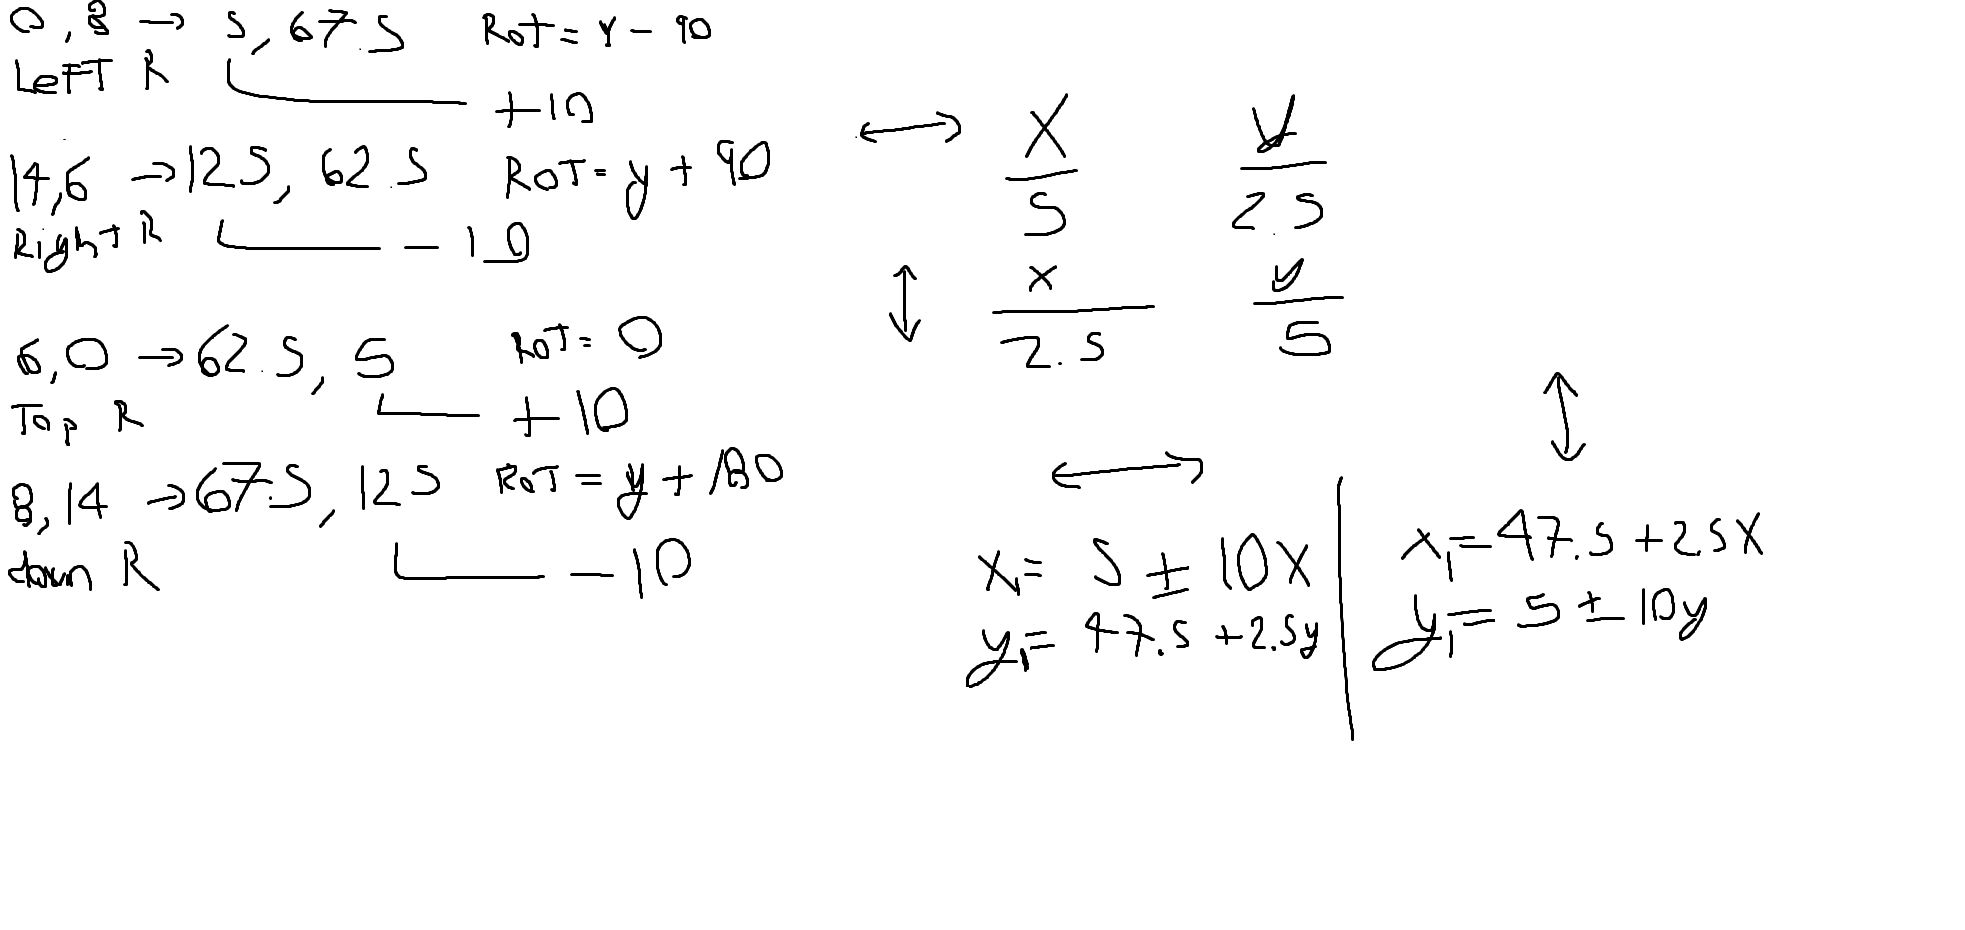 0,8 → 5, 67.5 Rot = Y - 90
LeFT R
+10
14,6 → 125, 62.5 ROT = y + 90
Right R - 10
6,0 → 62.5, 5 ROT = 0
Top R + 10
8,14 → 67.5, 125 ROT = y + 180
down R - 10
↔ X/5 y/2.5
↕ x/2.5 y/5
↔
x₁ = 5 ± 10X
y₁ = 47.5 + 2.5y
↕
x₁ = 47.5 + 2.5X
y₁ = 5 ± 10y